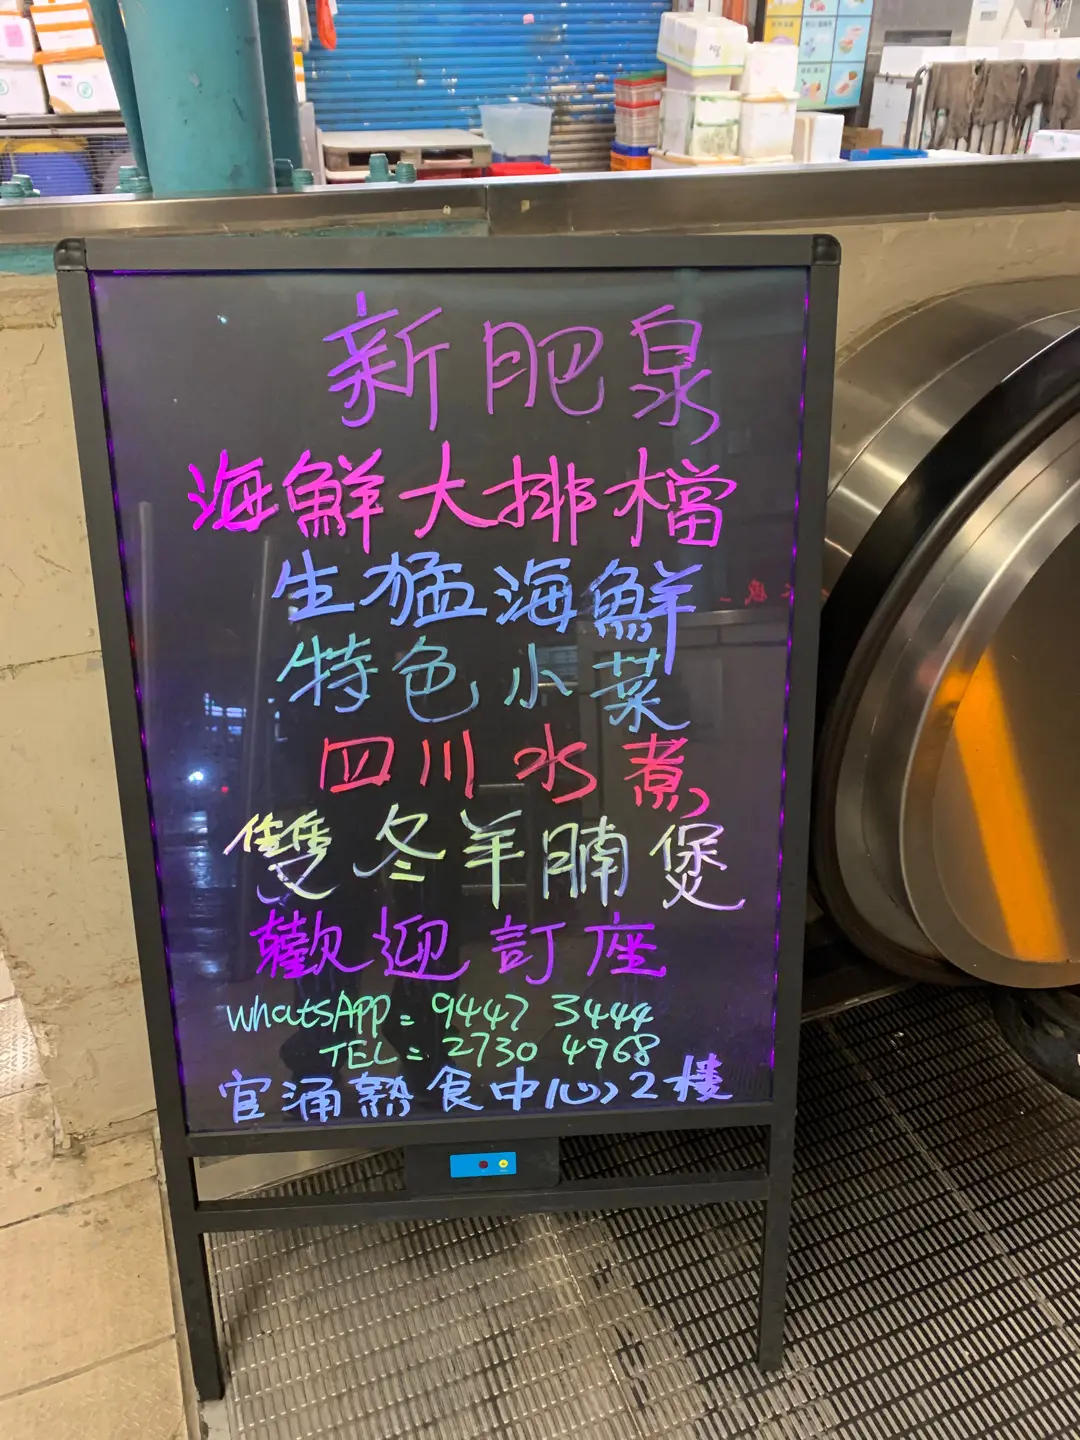 新肥泉
海鮮大排檔
生猛海鮮
特色小菜
四川水煮
雙冬羊腩煲
歡迎訂座
WhatsApp = 9447 3444
TEL = 2730 4968
官涌熟食中心2樓